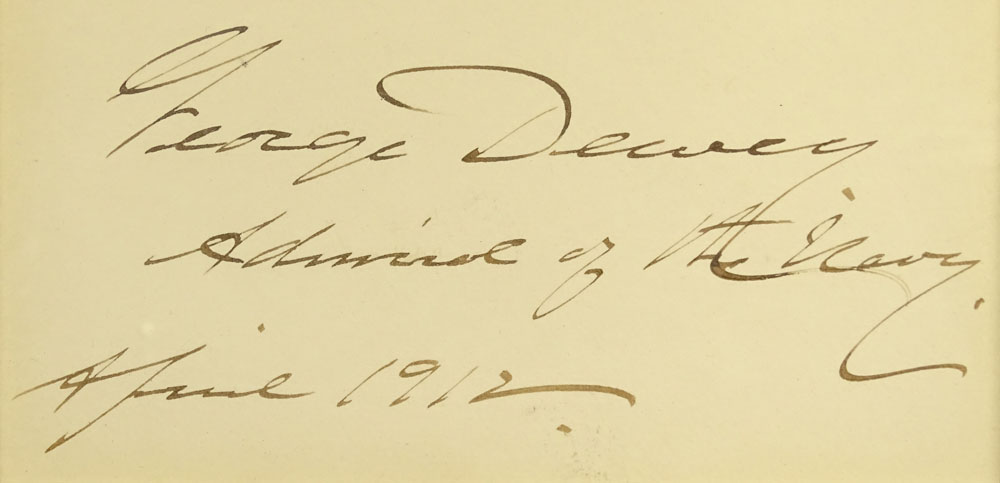 George Dewey
Admiral of the Navy.
April 1912.